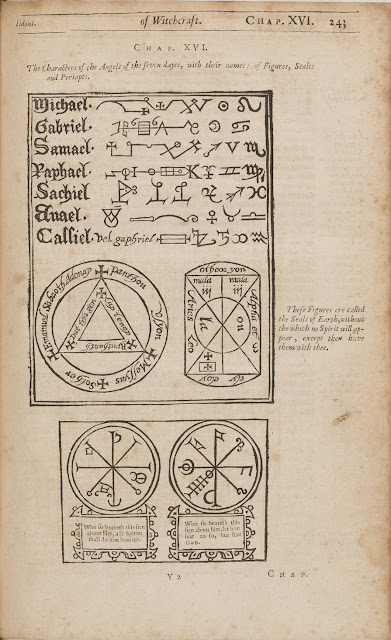 lidoni. of Witchcraft. CHAP. XVI. 243
CHAP. XVI.
The Characters of the Angels of the seven dayes, with their names: of Figures, Seales
and Periapts.
Michael.
Gabriel.
Samael.
Raphael.
Sachiel
Anael.
Cassiel. vel gaphriel
Emanuel Sabaoth Adonay Panthon
Usyon Messyas Sother
otheos yon
mala mala
on
la
ely eloy
These Figures are called
the Seales of Earth, without
the which no Spirit will ap-
pear, except thou have
them with thee.
Who so beareth this sign
about him, all Spirits
shall do him homage.
Who so beareth this
sign about him, let him
fear no fo, but fear
GOD.
Y 2 CHAP.